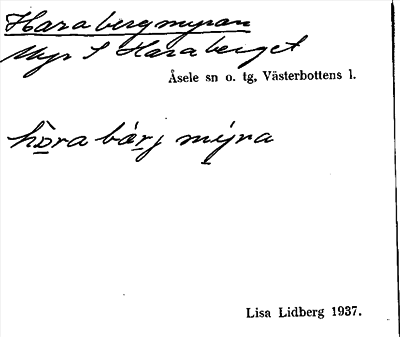 Harabergmyran
Myr S Haraberget
Åsele sn o. tg, Västerbottens l.
hòra bárj mýra
Lisa Lidberg 1937.